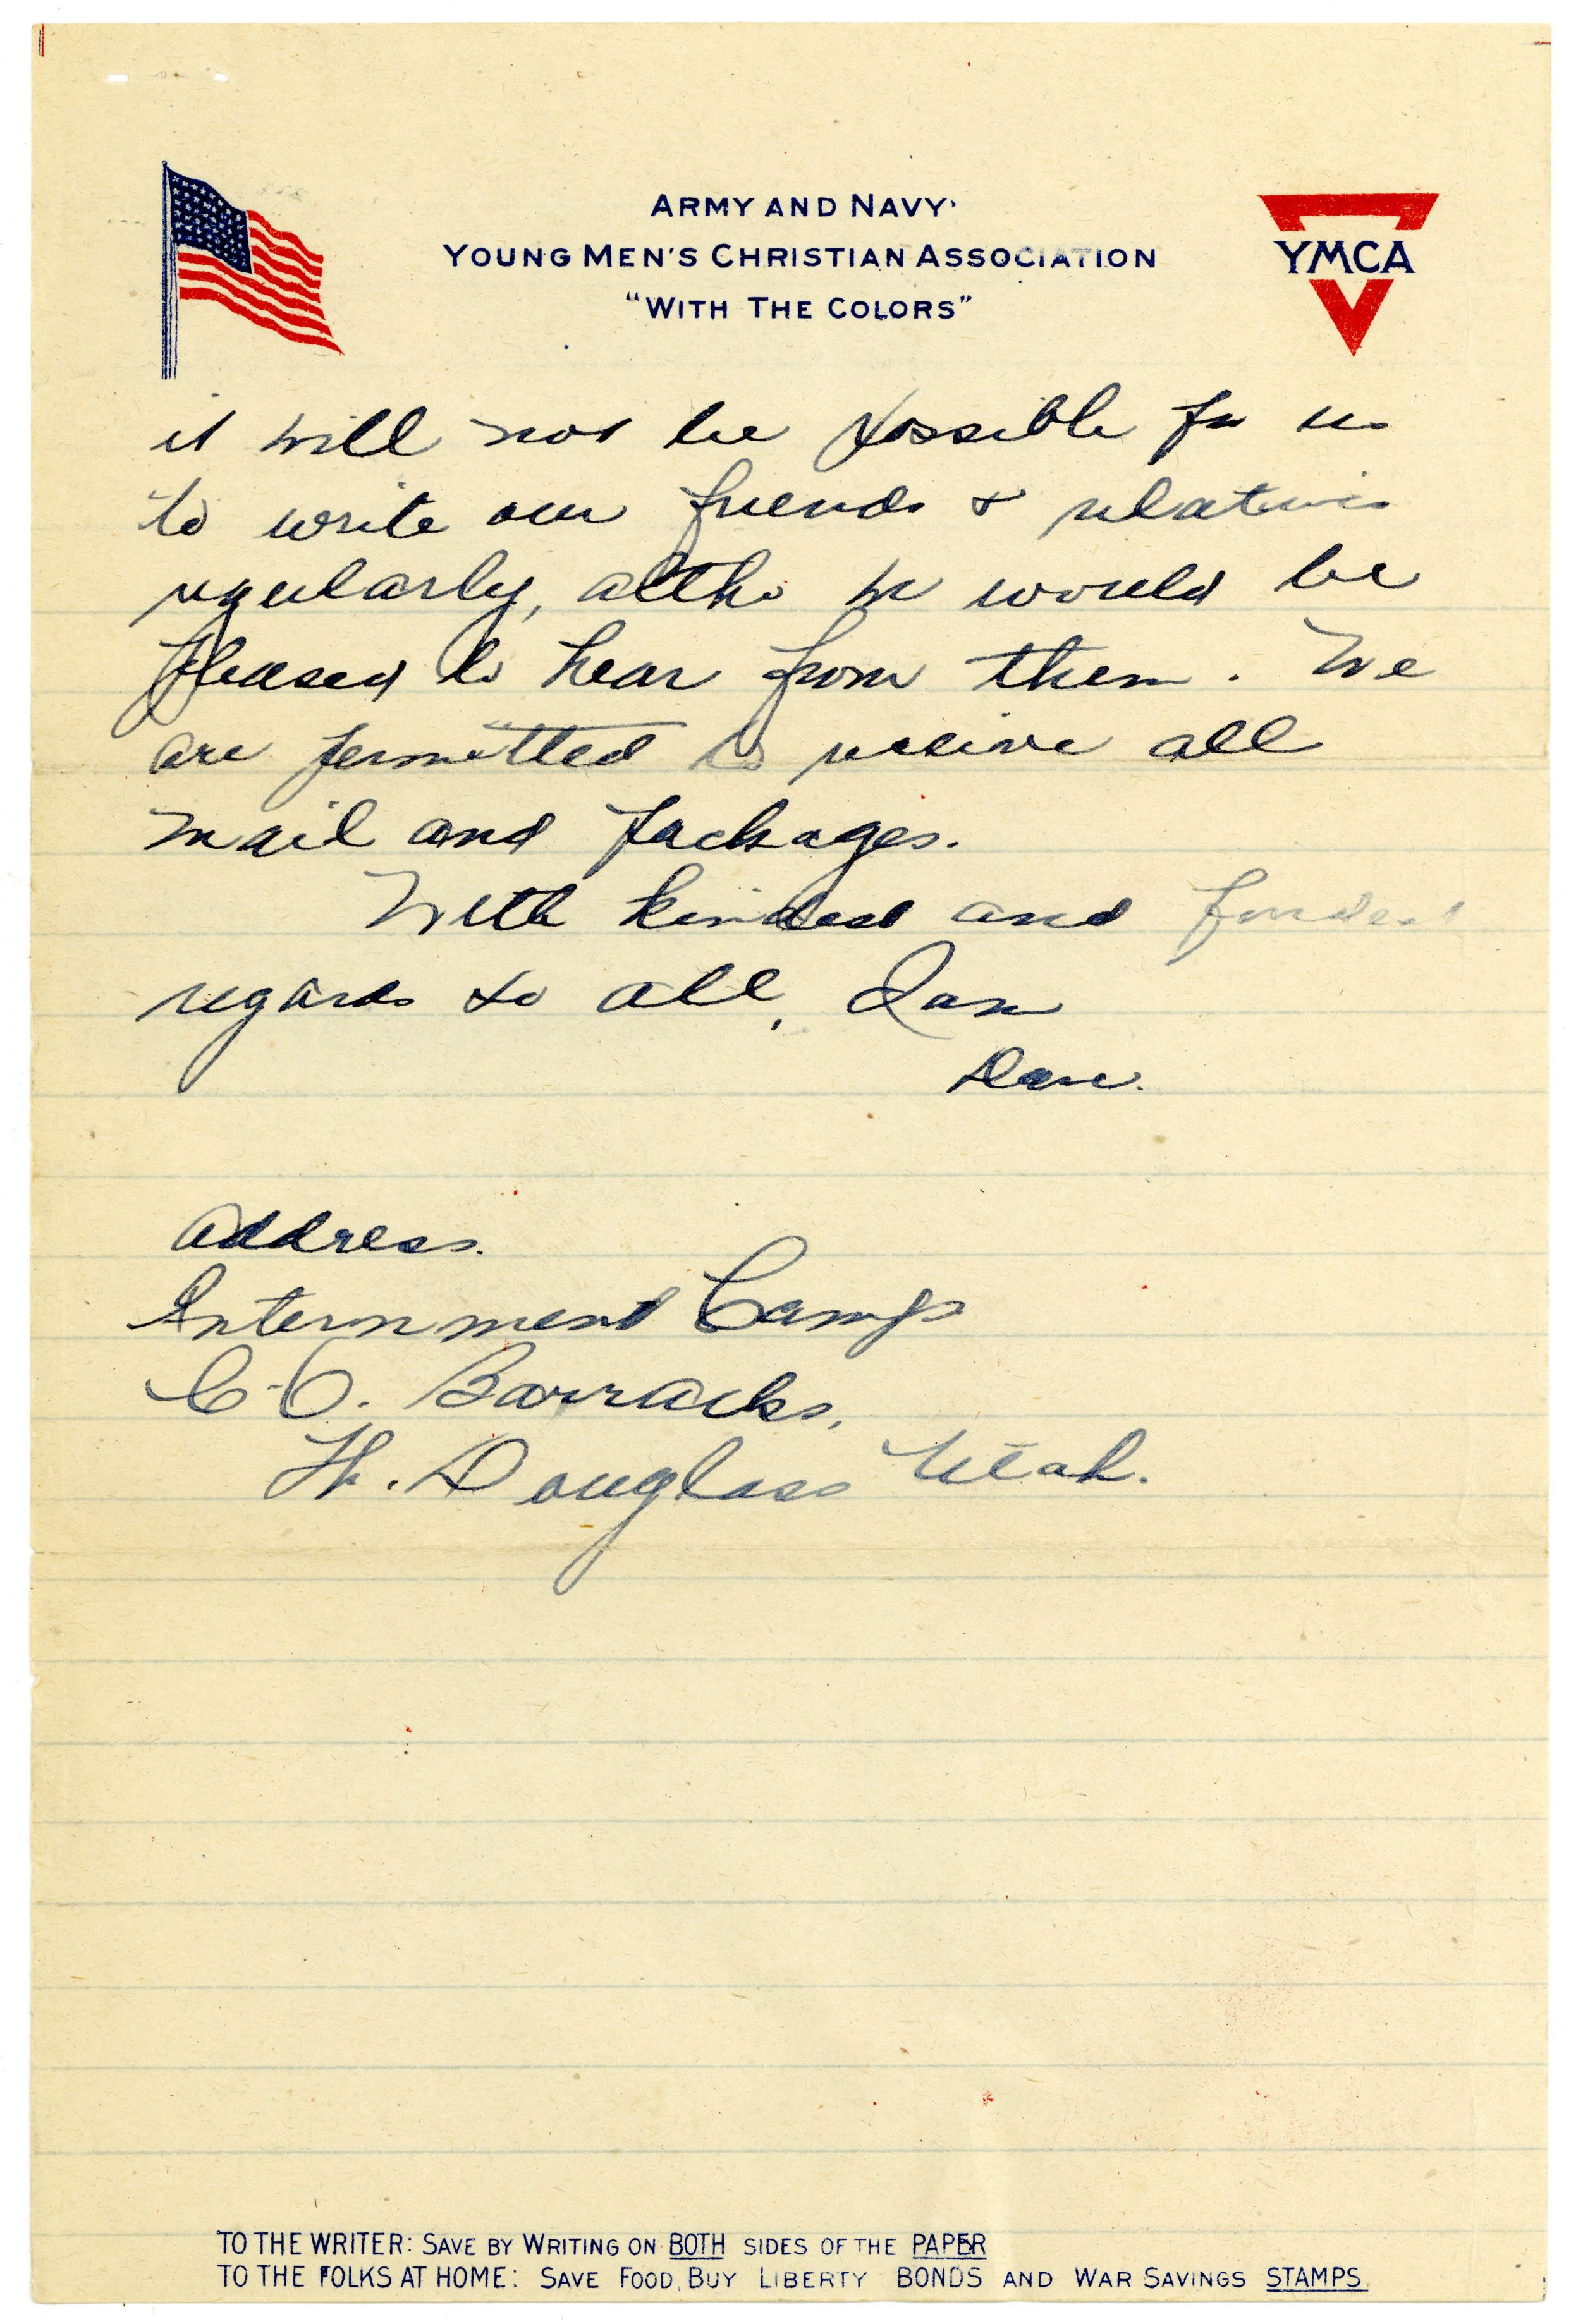 ARMY AND NAVY
YOUNG MEN'S CHRISTIAN ASSOCIATION
"WITH THE COLORS"
YMCA
it will not be possible for us
to write our friends & relatives
regularly, altho we would be
pleased to hear from them. We
are permitted to receive all
mail and packages.
With kindest and fondest
regards to all, I am
Dave.
Address.
Internment Camp
C-O. Barracks,
Ft. Douglass Utah.
TO THE WRITER: SAVE BY WRITING ON BOTH SIDES OF THE PAPER
TO THE FOLKS AT HOME: SAVE FOOD, BUY LIBERTY BONDS AND WAR SAVINGS STAMPS